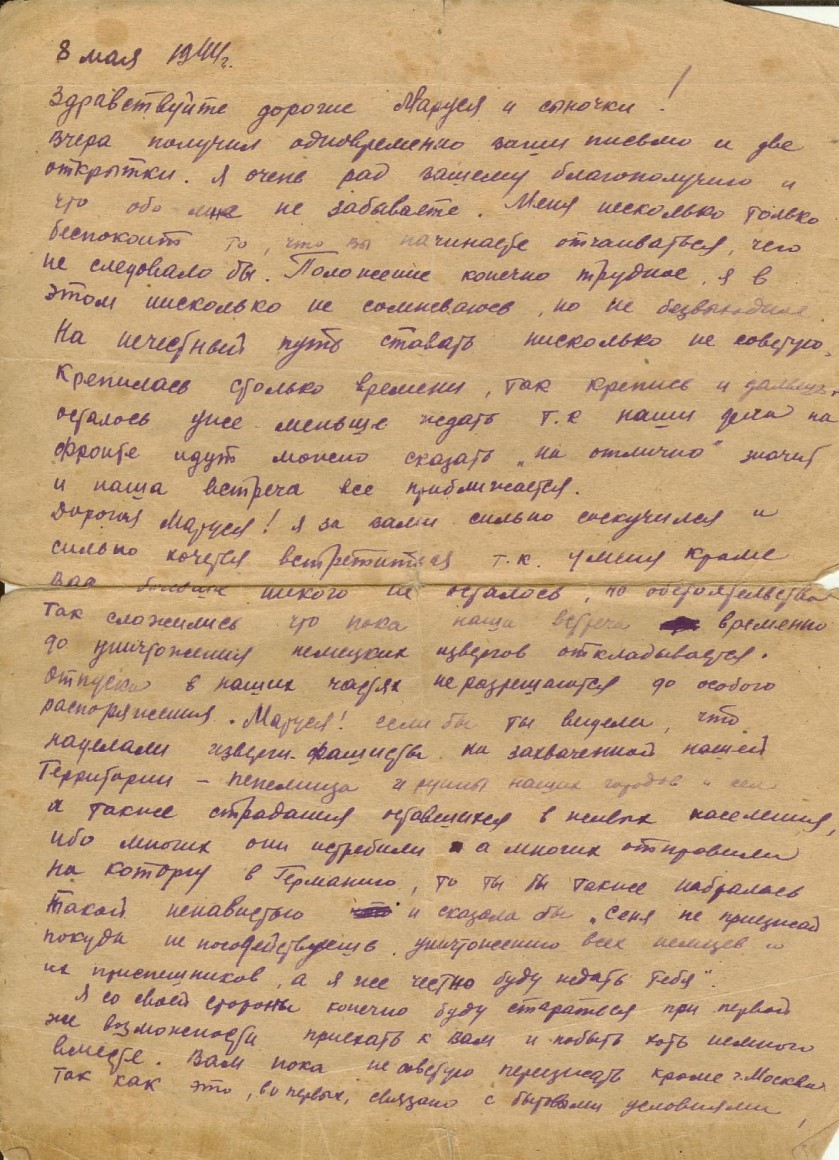 8 мая 1944г.
Здравствуйте дорогие Маруся и сыночки!
Вчера получил одновременно ваши письмо и две
открытки. Я очень рад вашему благополучию и
что обо мне не забываете. Меня несколько только
беспокоит то, что вы начинаете отчаиваться, чего
не следовало бы. Положение конечно трудное, я в
этом нисколько не сомневаюсь, но не безвыходное.
На нечестный путь ставать нисколько не советую.
Крепилась столько времени, так крепись и дальше,
осталось уже меньше ждать т.к наши дела на
фронте идут можно сказать „на отлично" значит
и наша встреча все приближается.
Дорогая Маруся! я за вами сильно соскучился и
сильно хочется встретиться т.к. у меня кроме
вас никого не осталось, но обстоятельства
так сложились что пока наша встреча временно
до уничтожения немецких извергов откладывается.
Отпуска в наших частях не разрешаются до особого
распоряжения. Маруся! если бы ты видела, что
наделали изверги-фашисты на захваченной нашей
Территории – пепелища и руины наших городов и сел
и также страдания оставшихся в живых населения,
ибо многих они истребили а многих отправили
на каторгу в Германию, то ты бы также набралась
такой ненавистью и сказала бы „Сеня не приезжай
покуда не посодействуешь уничтожению всех немцев и
их приспешников, а я же честно буду ждать тебя".
Я со своей стороны конечно буду стараться при первой
же возможности приехать к вам и побыть хоть немного
вместе. Вам пока не советую переезжать кроме г. Москвы
так как это, во первых, связано с бытовыми условиями,